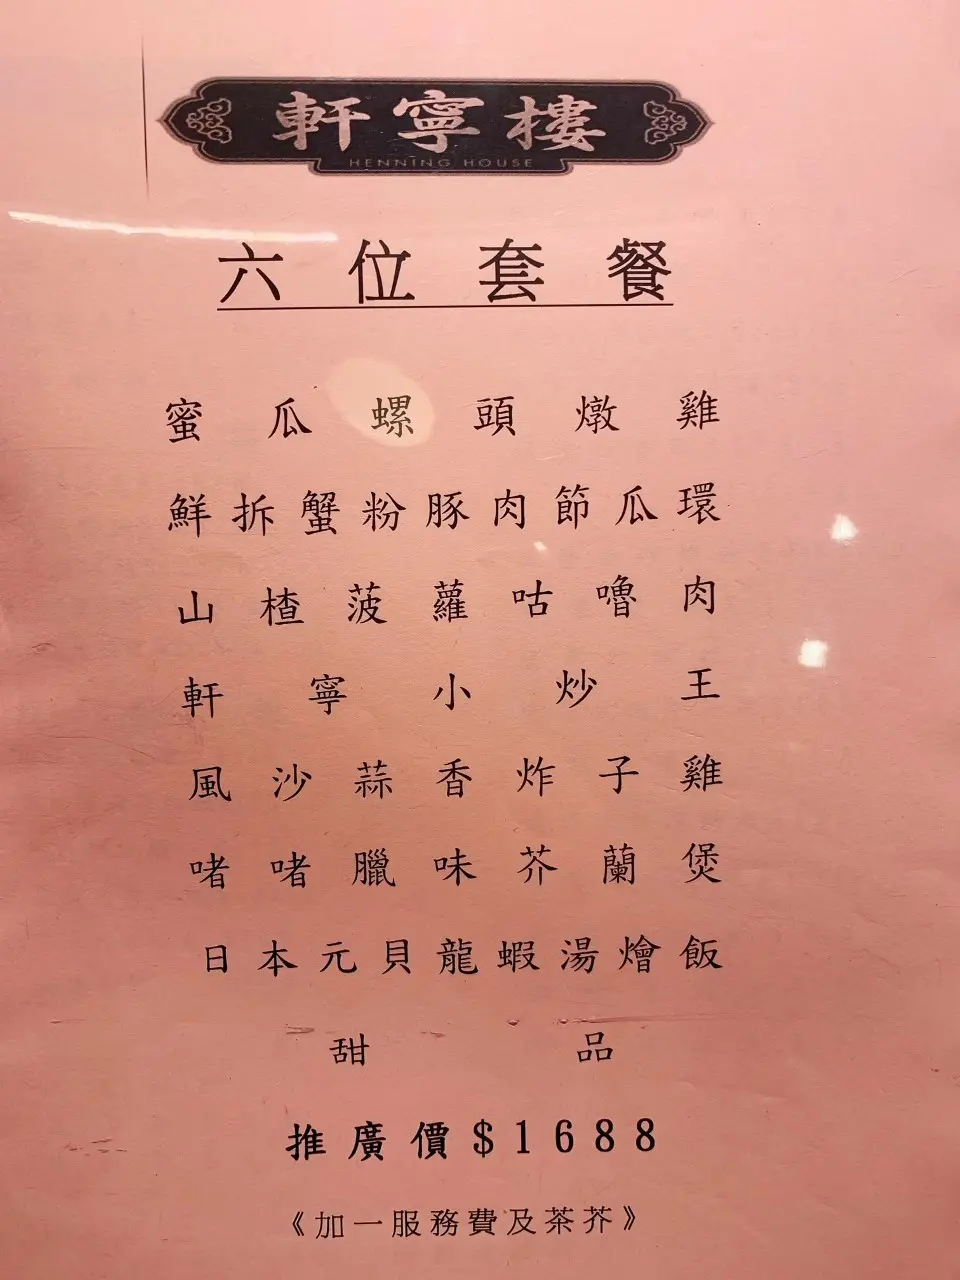 軒寧樓
HENNING HOUSE
六位套餐
蜜瓜螺頭燉雞
鮮拆蟹粉豚肉節瓜環
山楂菠蘿咕嚕肉
軒寧小炒王
風沙蒜香炸子雞
啫啫臘味芥蘭煲
日本元貝龍蝦湯燴飯
甜品
推廣價$1688
《加一服務費及茶芥》